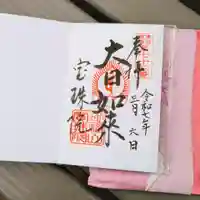 奉拝
令和七年
三月六日
大日如来
宝珠院